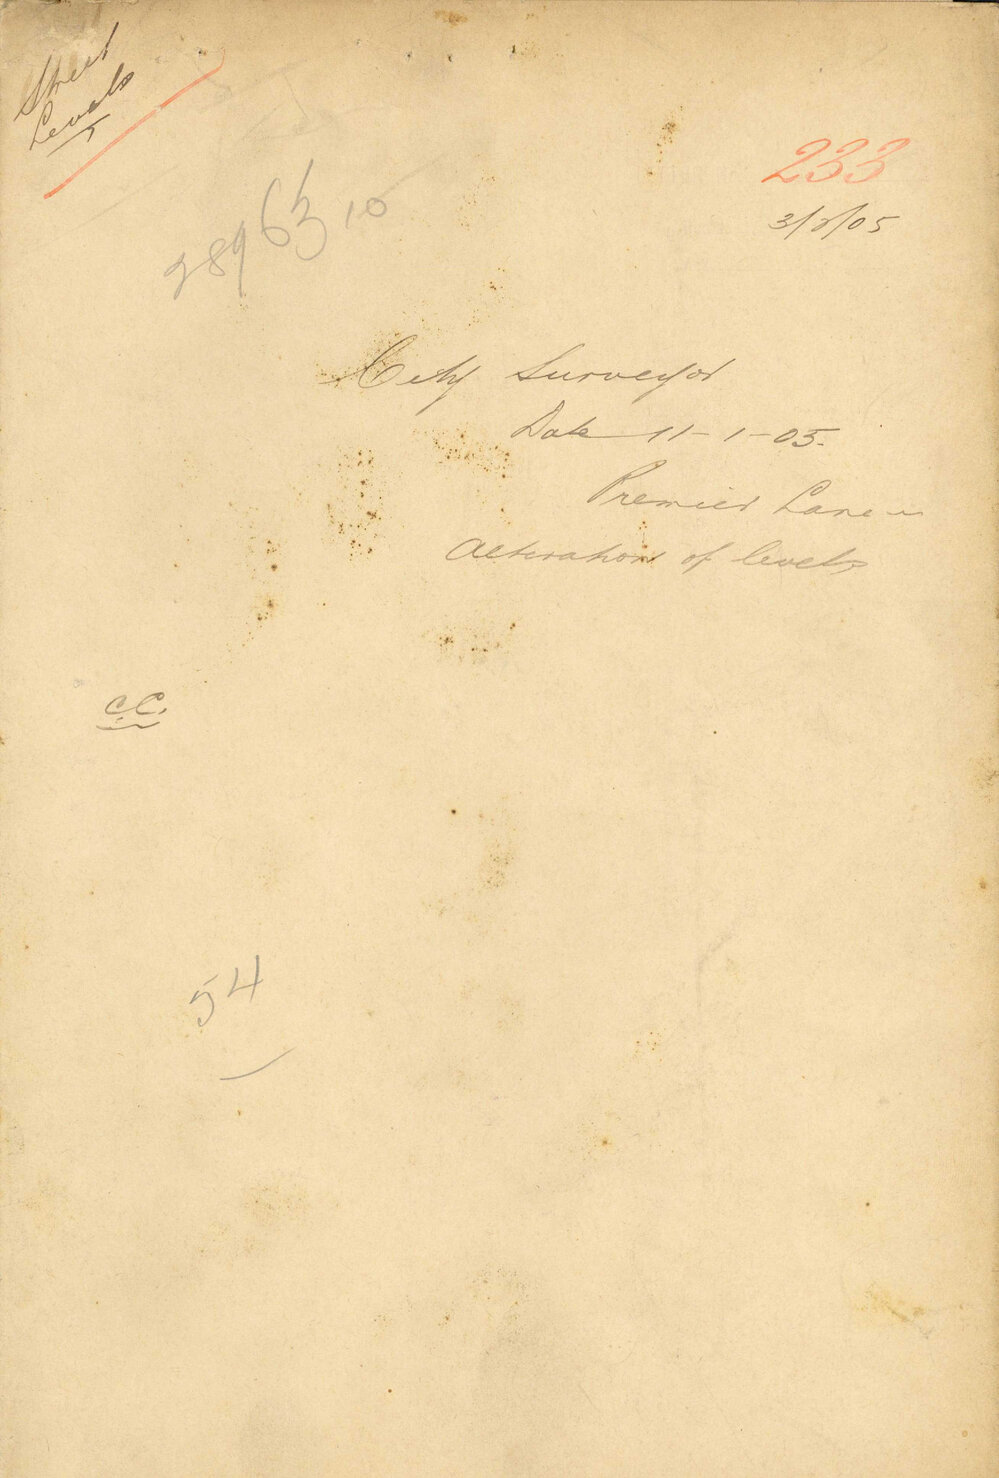 Street
Levels
233
3/2/05
City Surveyor
Date 11-1-05.
Premier Lane
Alteration of levels
C.C.
54